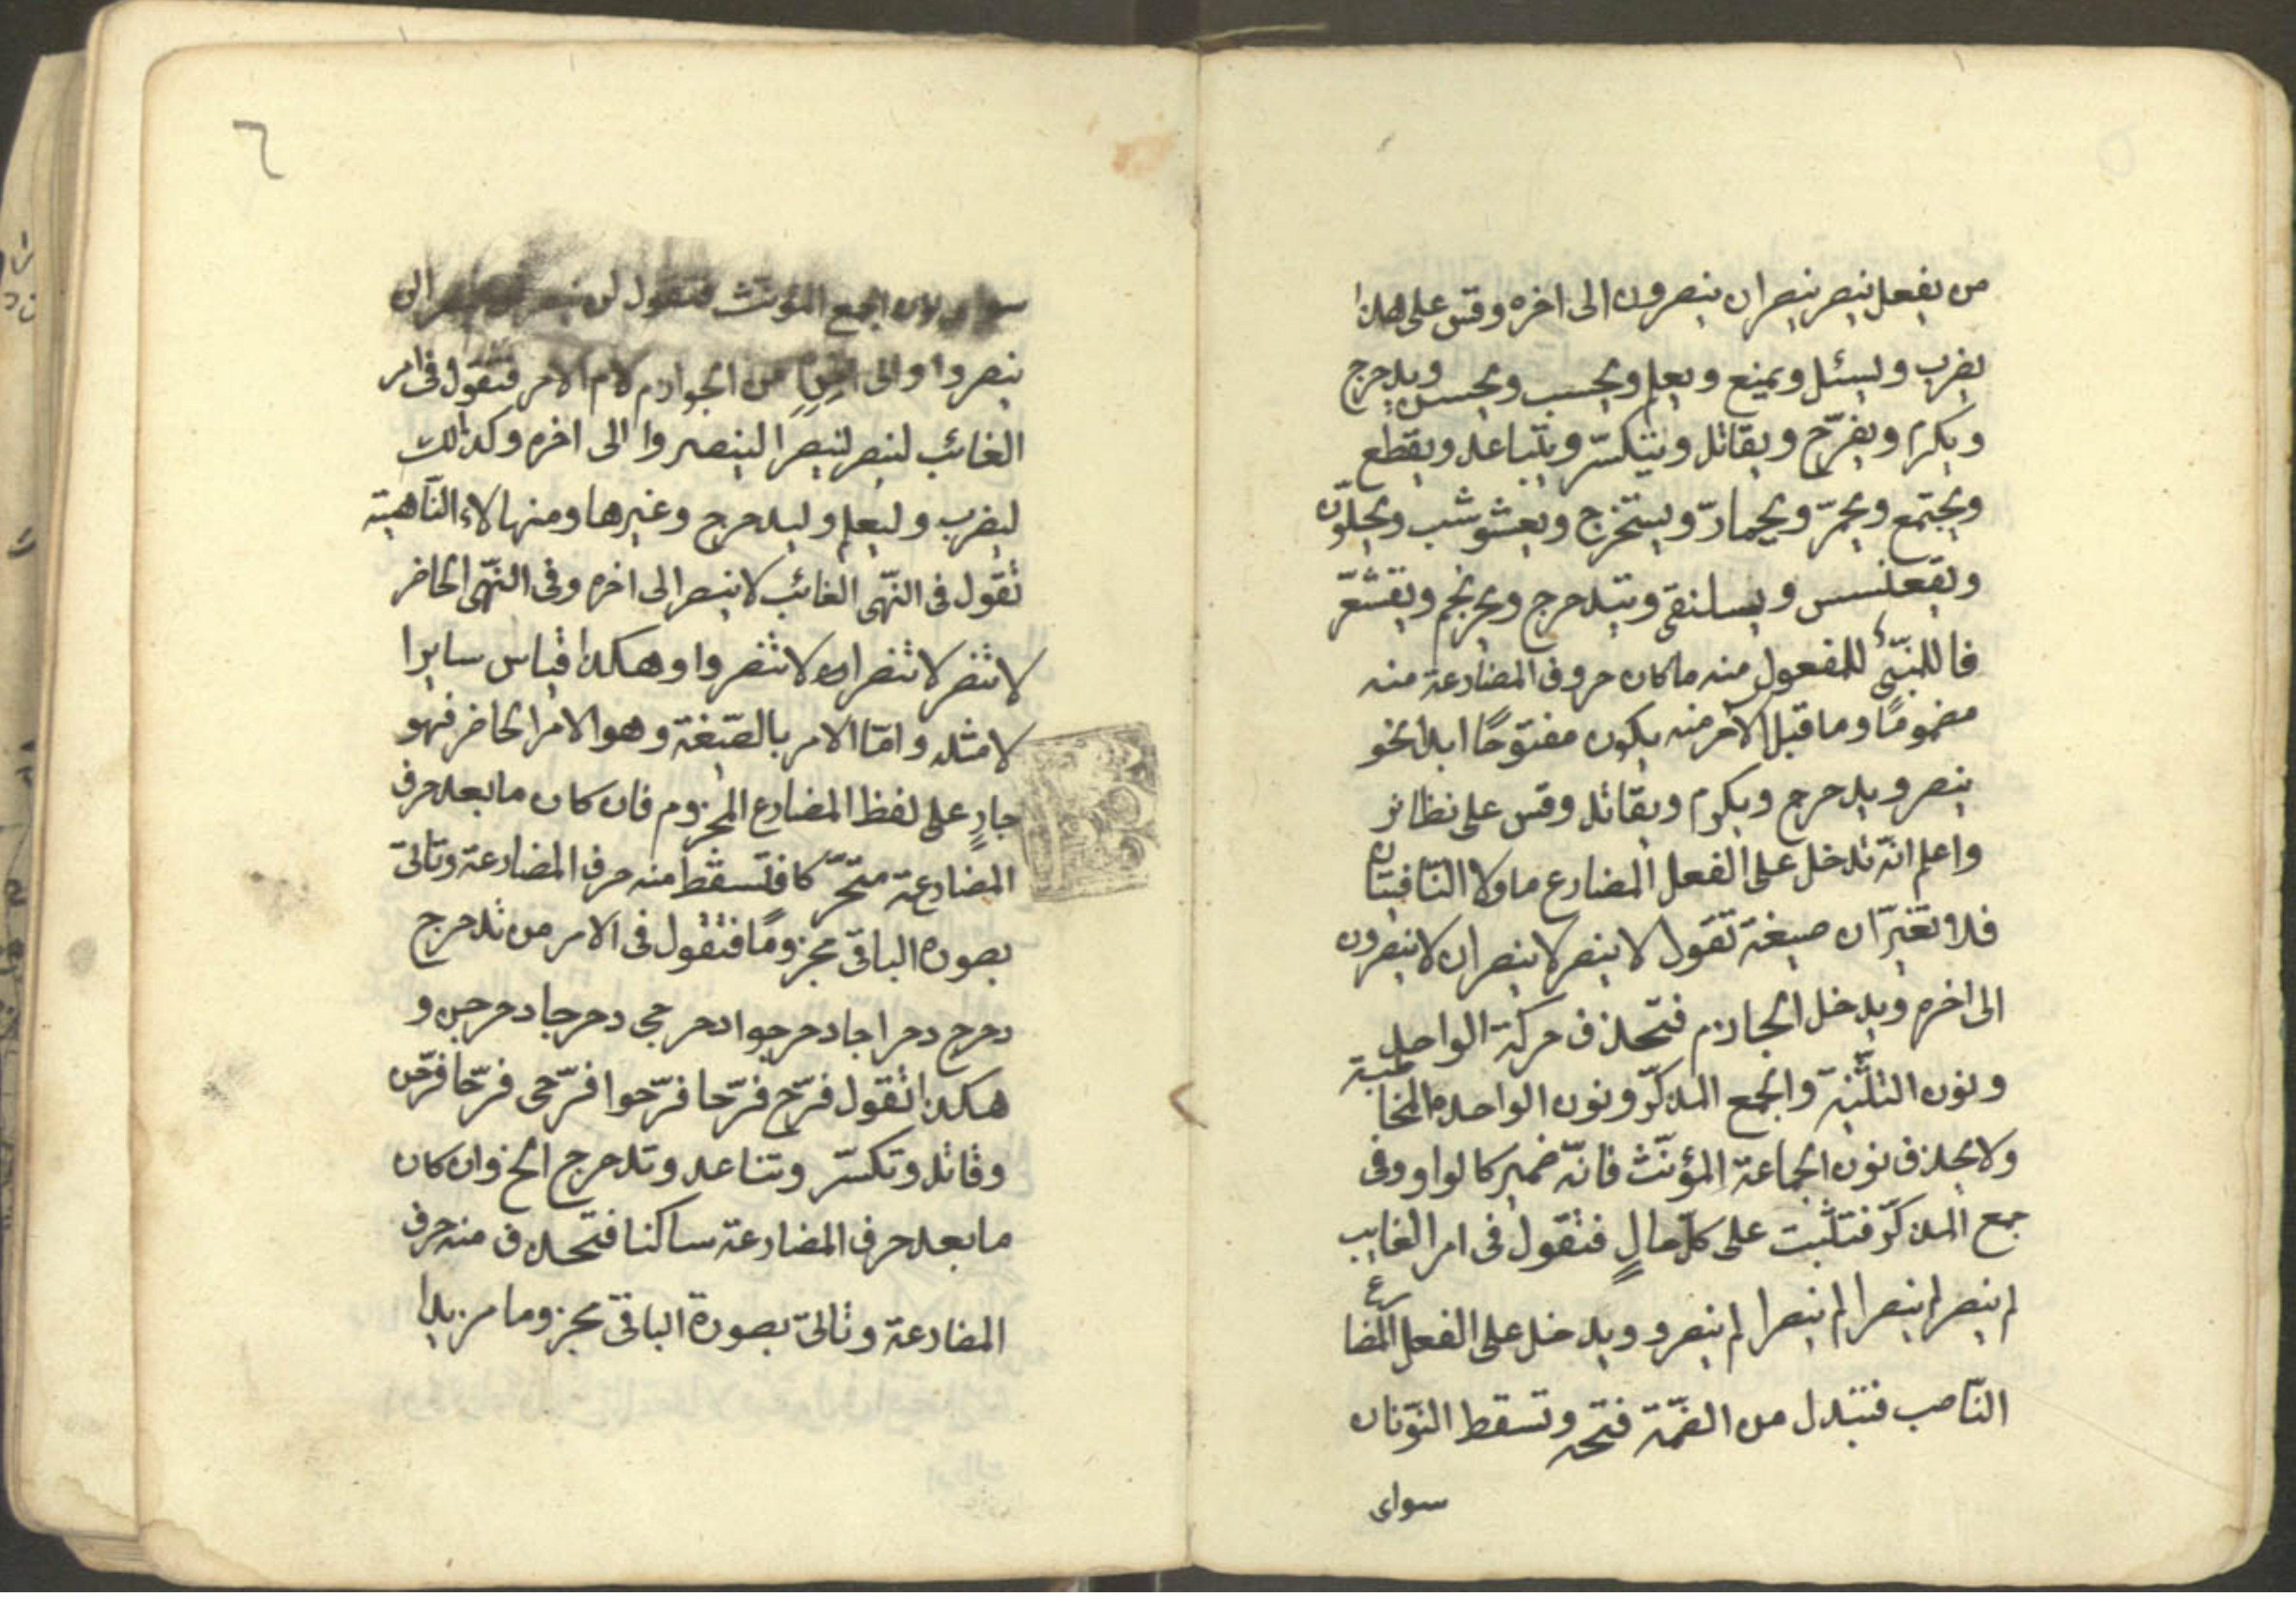 من يفعل ينصر ينصران ينصرون الى اخره وقس على هذا
يضرب ويسئل ويمنع ويعلم ويحسب ويحسن ويدحرج
ويكرم ويفرّح ويقاتل ويتكسّر ويتباعد ويقطع
ويجتمع ويحمرّ ويحمارّ ويستخرج ويعشوشب ويجلوّن
ويقعنسس ويسلنقى ويتدحرج ويحرنجم ويقشعّر
فاللمبنّىء للمفعول منه ما كان حروف المضارعة منه
مضمومًا وما قبل الآخر منه يكون مفتوحًا ابدا نحو
ينصر ويدحرج ويكرم ويقاتل وقس على نظائر
واعلم انّه تدخل على الفعل المضارع ما ولا النّافيتان
فلا تغيّران صيغة تقول لا ينصر لا ينصران لا ينصرون
الى اخره ويدخل الجازم فتحذف حركة الواحد
ونون التثنية والجمع المذكّر ونون الواحدة المخاطبة
ولا يحذف نون الجماعة المؤنّث فانّه ضمير كالواو وفى
جمع المذكّر فتثبت على كلّ حالٍ فتقول فى امر الغايب
لم ينصر لم ينصرا لم ينصرا لم ينصرو ويدخل على الفعل المضارع
النّاصب فتبدل من الضمّة فتحه وتسقط النوّنان
سواى
٦
سواى نون الجمع المؤنث فتقول لن ينصر لن ينصرا لن
ينصروا والى من الجوازم لام الامر فتقول فى امر
الغائب لينصر لينصرا لينصروا الى اخره وكذالك
ليضرب وليعلم وليدحرج وغيرها ومنها لاء النّاهية
تقول فى النّهى الغائب لا ينصر الى اخره وفى النّهى الحاضر
لا تنصر لا تنصرا لا تنصروا وهكذا قياس سايرا
لامثله وامّا الامر بالصّيغة وهو الامر الحاضر فهو
جارٍ على لفظ المضارع المجزوم فان كان ما بعد حرف
المضارعة متحرّكا فتسقط منه حرف المضارعة وتاتى
بصورة الباقى مجزومًا فتقول فى الامر من تدحرج
دحرج دحراجا دحرجوا دحرجى دحرجا دحرجن و
هكذا تقول فرّح فرّحا فرّحوا فرّحى فرّحا فرّحن
وقاتل وتكسّر وتباعد وتدحرج الخ وان كان
ما بعد حرف المضارعة ساكنا فتحذف منه حرف
المضارعة وتاتى بصورة الباقى مجزوما مزيدا